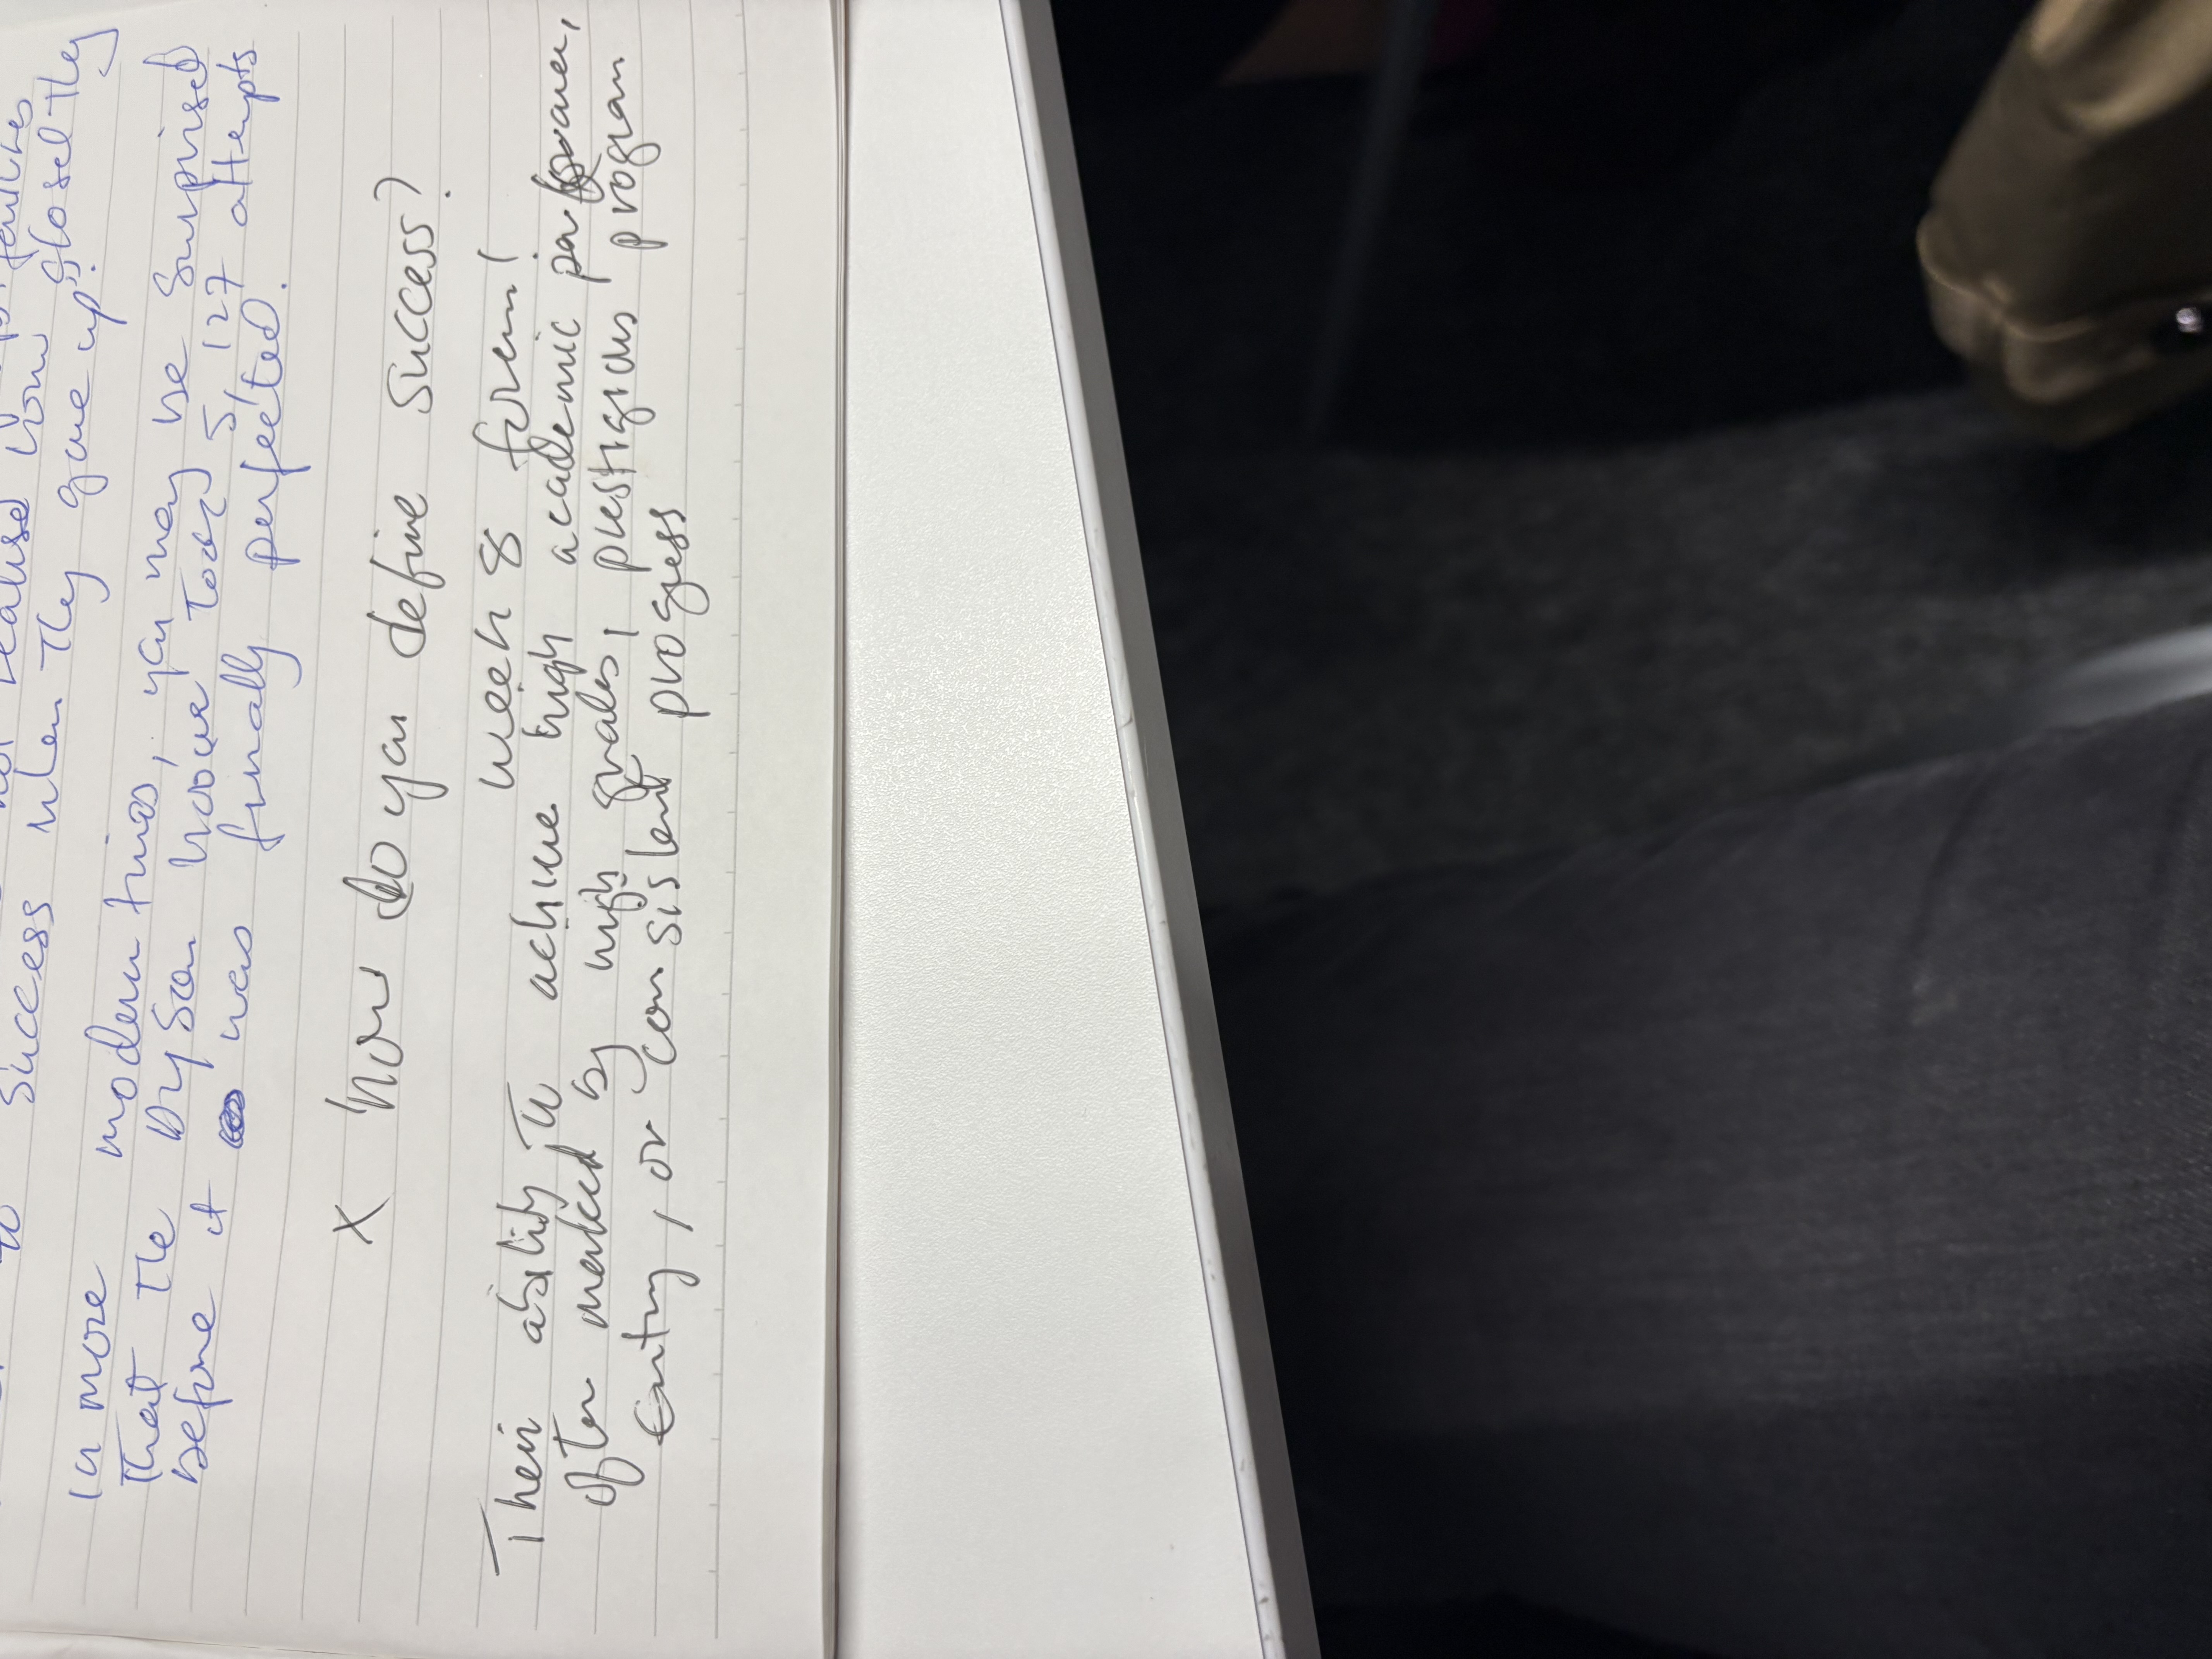 realise how
success when they gave up". closel they
In more modern times, you may be surprised
that the Dyson hoover took 5,127 attempts
before it was finally perfected.
X 'How do you define success?
week 8 forum!
Their ability to achieve high academic performance,
often marked by high grades, prestigious program
entry, or consistent progress